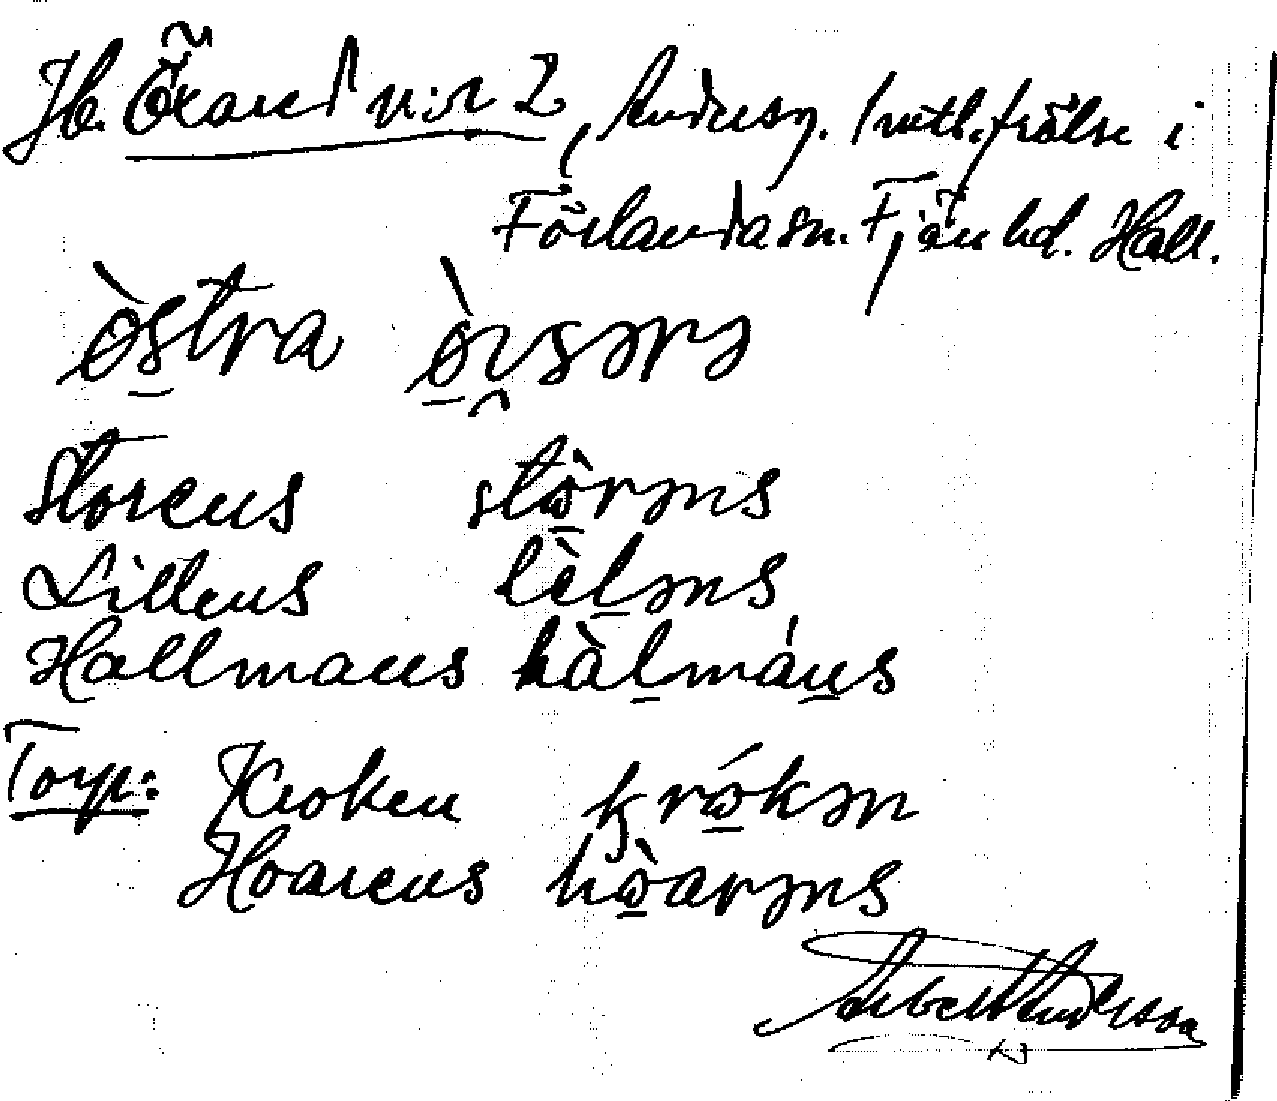 Hb. Öxared n:r 2, Andersg. /mtl. frälse i
Förlanda sn. Fjäre hd. Hall.
östra
Storens stòrəns
Lillens lèləns
Hallmans hàlmáns
Torp: Kroken krókən
Hoarens hòarəns
Albert Andersson